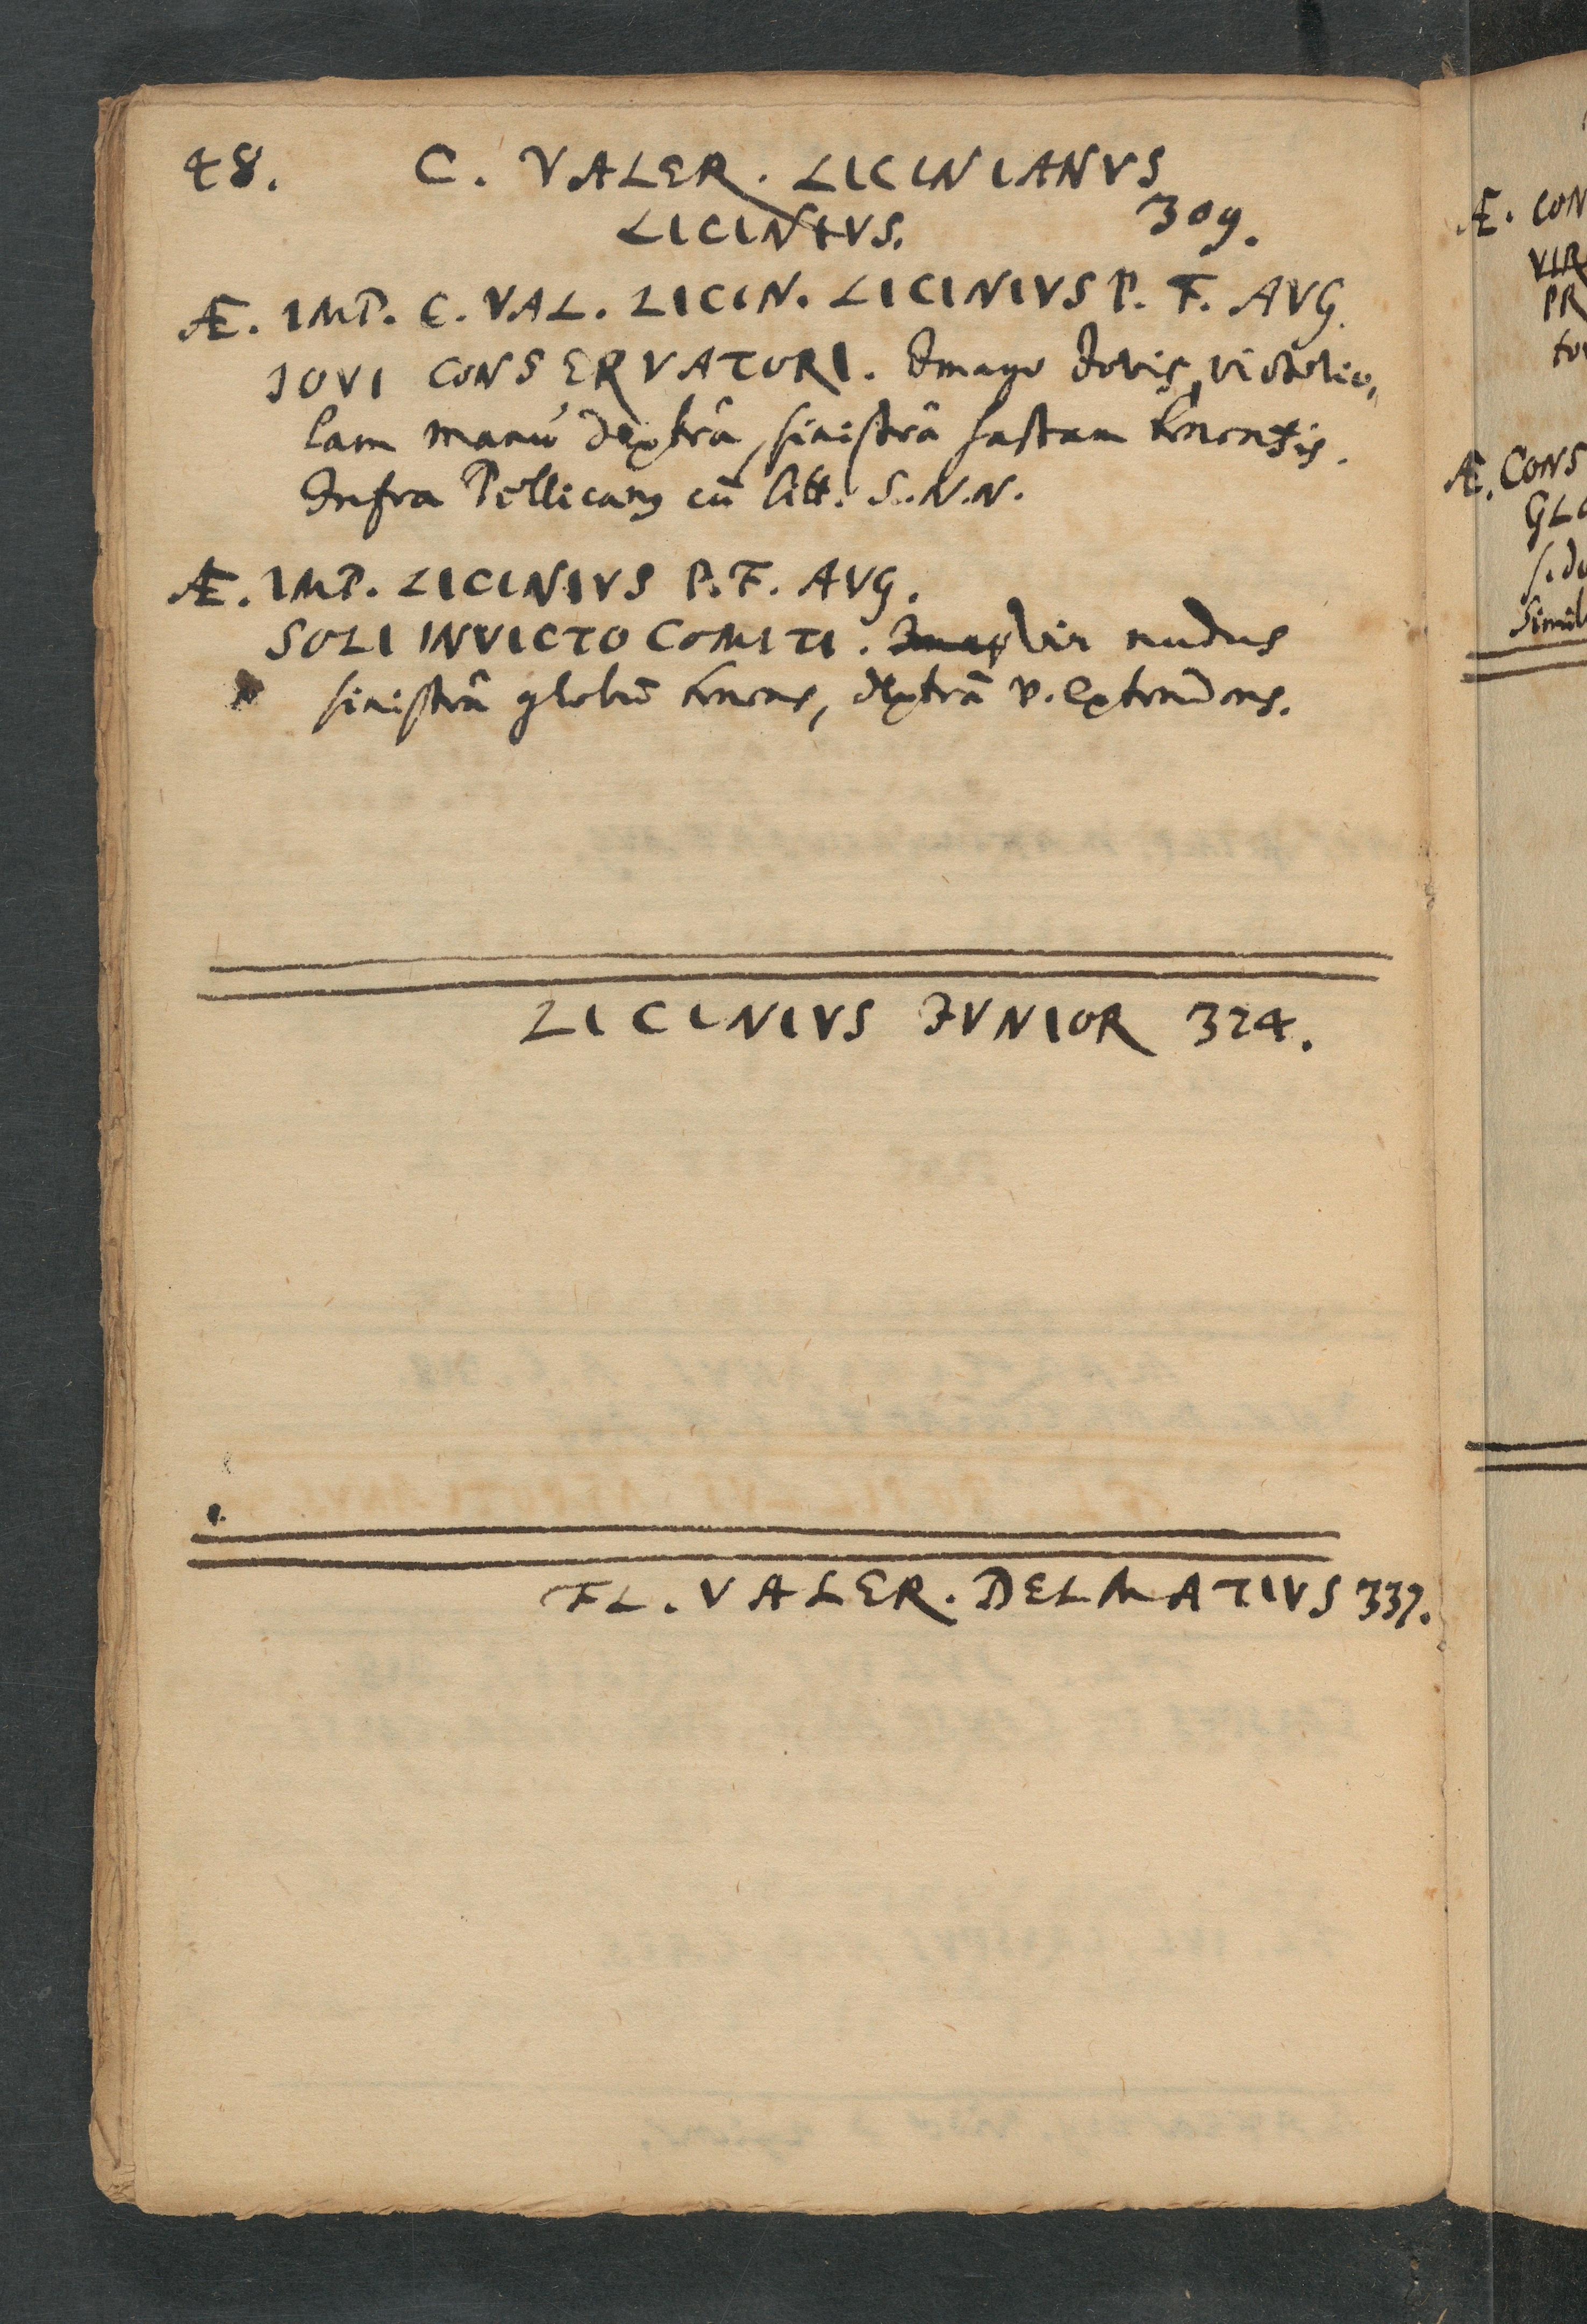 48. C. VALER. LICINIANVS
LICINIVS. 309.
Æ. IMP. C. VAL. LICIN. LICINIVS P. F. AVG.
IOVI CONSERVATORI. Imago Iovis, victorio,
lam manu dextrâ, sinistrâ hastam tenentis.
Infra Pellicanꝰ cū litt. S. N. N.
Æ. IMP. LICINIVS P. F. AVG.
SOLI INVICTO COMITI. Vir nudus
sinistrâ globū tenens, dextrâ v. extendens.
LICINIVS IVNIOR 324.
FL. VALER. DELMATIVS 337.
Æ. CON
VIR
PR
Æ. CONS
GLO
Simil